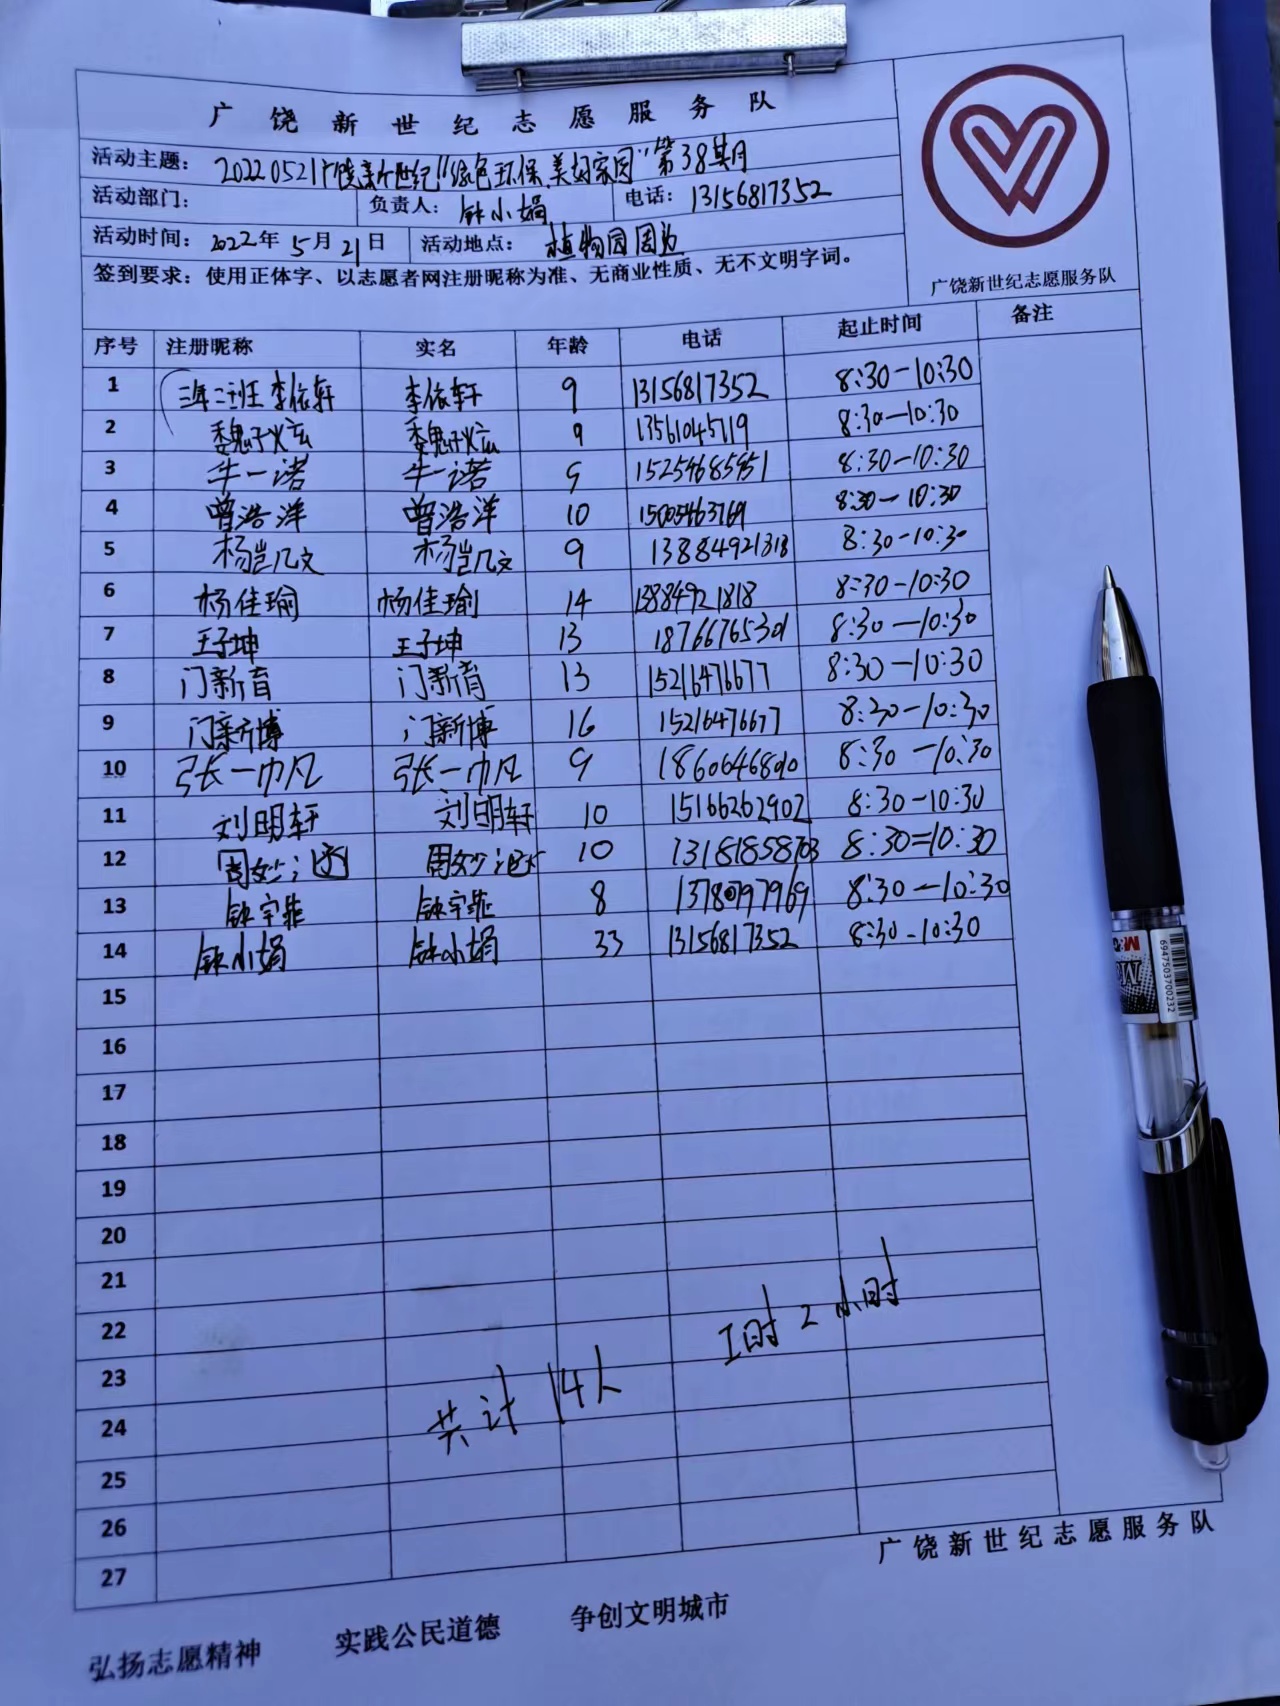 广饶新世纪志愿服务队
活动主题: 20220521广饶新世纪"绿色环保,美好家园"第38期
活动部门: 负责人: 钟小娟 电话: 13156817352
活动时间: 2022年5月21日 活动地点: 植物园周边
签到要求: 使用正体字、以志愿者网注册昵称为准、无商业性质、无不文明字词。
广饶新世纪志愿服务队
序号 注册昵称 实名 年龄 电话 起止时间 备注
1 三年二班李依轩 李依轩 9 13156817352 8:30-10:30
2 9 13561045719 8:30-10:30
3 牛一诺 牛一诺 9 15254685951 8:30-10:30
4 曾浩洋 曾浩洋 10 8:30-10:30
5 9 8:30-10:30
6 杨佳瑜 杨佳瑜 14 13884921818 8:30-10:30
7 王子坤 王子坤 13 18766765301 8:30-10:30
8 门新育 门新育 13 15216476677 8:30-10:30
9 门新博 门新博 16 15216476677 8:30-10:30
10 张一帆 张一帆 9 8:30-10:30
11 刘明轩 刘明轩 10 15166262902 8:30-10:30
12 10 8:30=10:30
13 8 8:30-10:30
14 钟小娟 钟小娟 33 13156817352 8:30-10:30
15
16
17
18
19
20
21
22
23
24
25
26
27
共计14人 工时2小时
广饶新世纪志愿服务队
弘扬志愿精神 实践公民道德 争创文明城市
M&G
6947503700232